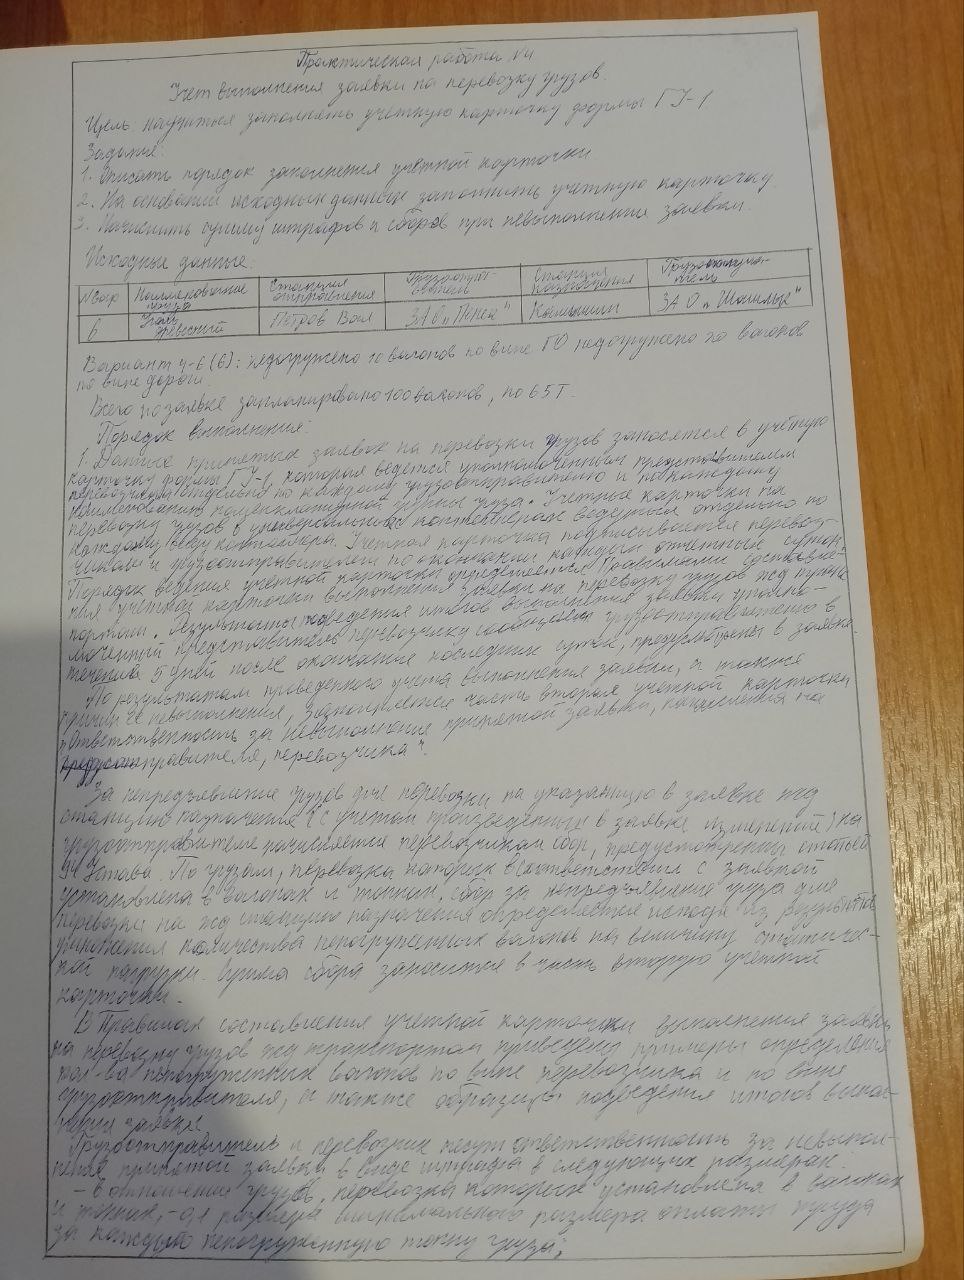 Практическая работа №4
Учет выполнения заявки на перевозку грузов.
Цель научиться заполнять учетную карточку формы ГУ-1
Задания:
1. Описать порядок заполнения учетной карточки.
2. На основании исходных данных заполнить учетную карточку.
3. Начислить сумму штрафов и сборов при невыполнении заявки.
Исходные данные:
Наименование груза Станция отправления Грузоотправитель Станция назначения Грузополучатель
6 Уголь древесный Петров Вал ЗАО „ " Камышин ЗАО „Шашлык"
Вариант 4-6 (6): недогружено 10 вагонов по вине ГО недогружено 20 вагонов
по вине дороги.
Всего по заявке запланировано 100 вагонов, по 65т.
Порядок выполнения:
1. Данные принятых заявок на перевозки грузов заносятся в учётную
карточку формы ГУ-1, которая ведется уполномоченным представителем
перевозчика отдельно по каждому грузоотправителю и по каждому
наименованию номенклатурной группы груза. Учетные карточки на
перевозку грузов в универсальных контейнерах ведутся отдельно по
каждому виду контейнера. Учетная карточка подписывается перевоз-
чиком и грузоотправителем по окончании каждых отчетных суток.
Порядок ведения учетной карточки определяется Правилами составле-
ния учетной карточки выполнения заявки на перевозку грузов жд
. Результаты подведения итогов выполнения заявки уполно-
моченный представитель перевозчика сообщает грузоотправителю в
течение 5 дней после окончания последних суток, предусмотрены в заявке.
По результатам проведенного учета выполнения заявки, а также
причин её невыполнения, заполняется часть вторая учетной карточки
"Ответственность за невыполнение принятой заявки,
грузоотправителя, перевозчика".
За непредъявление грузов для перевозки на указанную в заявке жд
станцию назначения (с учетом произведенных в заявке изменений) на
грузоотправителя начисляется перевозчиком сбор, предусмотренный статьей
94 Устава. По грузам, перевозка которых в соответствии с заявкой
установлена в вагонах и тоннах, сбор за непредъявление груза для
перевозки на жд станцию назначения определяется исходя из результатов
умножения количества непогруженных вагонов на величину статичес-
кой нагрузки. Сумма сбора заносится в часть вторую учетной
карточки.
В Правилах составления учетной карточки выполнения заявки
на перевозку грузов жд транспортом приведены примеры определения
кол-ва непогруженных вагонов по вине перевозчика и по вине
грузоотправителя, а также образцы подведения итогов выпол-
нения заявки.
Грузоотправитель и перевозчик несут ответственность за невыпол-
нение принятой заявки в виде штрафа в следующих размерах:
- в отношении грузов, перевозка которых установлена в вагонах
и тоннах, - 0,1 размера минимального размера оплаты труда
за каждую непогруженную тонну груза;